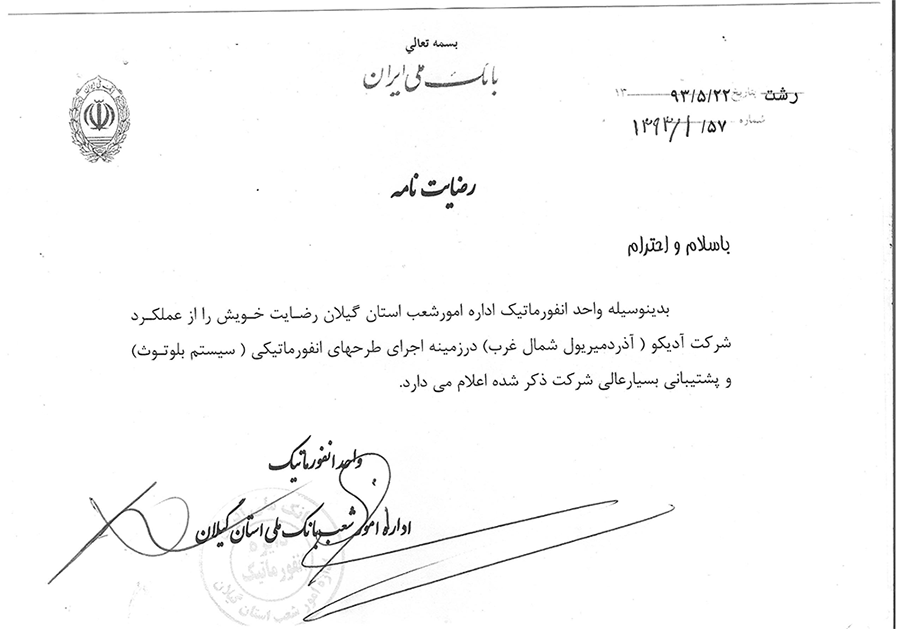 بسمه تعالي
بانک ملی ایران
رشت بتاریخ ۹۳/۵/۲۲ ۱۳
شماره ۱۳۹۳/۱/۵۷
رضایت نامه
باسلام و احترام
بدینوسیله واحد انفورماتیک اداره امورشعب استان گیلان رضـایت خـویش را از عملکـرد
شرکت آدیکو ( آذردمیریول شمال غرب) درزمینه اجرای طرحهای انفورماتیکی ( سیستم بلوتـوث)
و پشتیبانی بسیارعالی شرکت ذکر شده اعلام می دارد.
واحد انفورماتیک
اداره امور شعب بانک ملی استان گیلان
دایره
انفورماتیک
اداره امور شعب استان گیلان